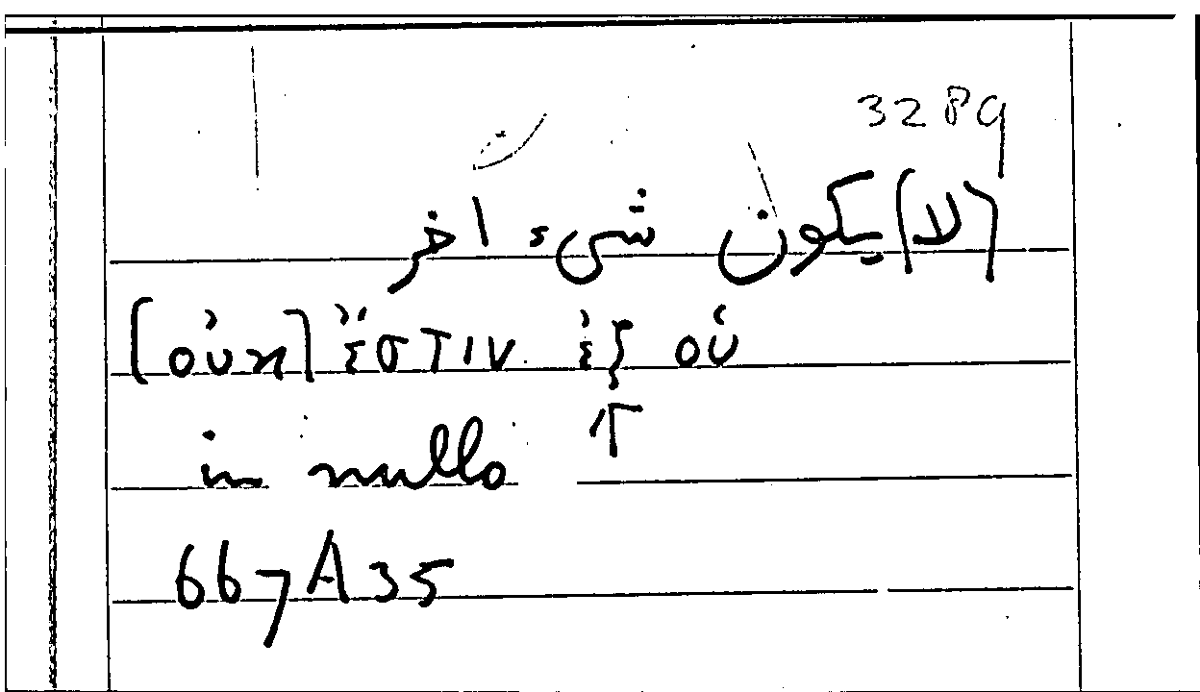 3289
(لا) يكون شيء اخر
[οὐκ] ἔστιν ἐξ οὗ
in nullo
667A35